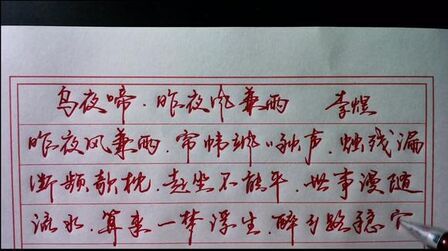 乌夜啼·昨夜风兼雨 李煜
昨夜风兼雨,帘帏飒飒秋声。烛残漏
断频欹枕,起坐不能平。世事漫随
流水,算来一梦浮生。醉乡路稳宜